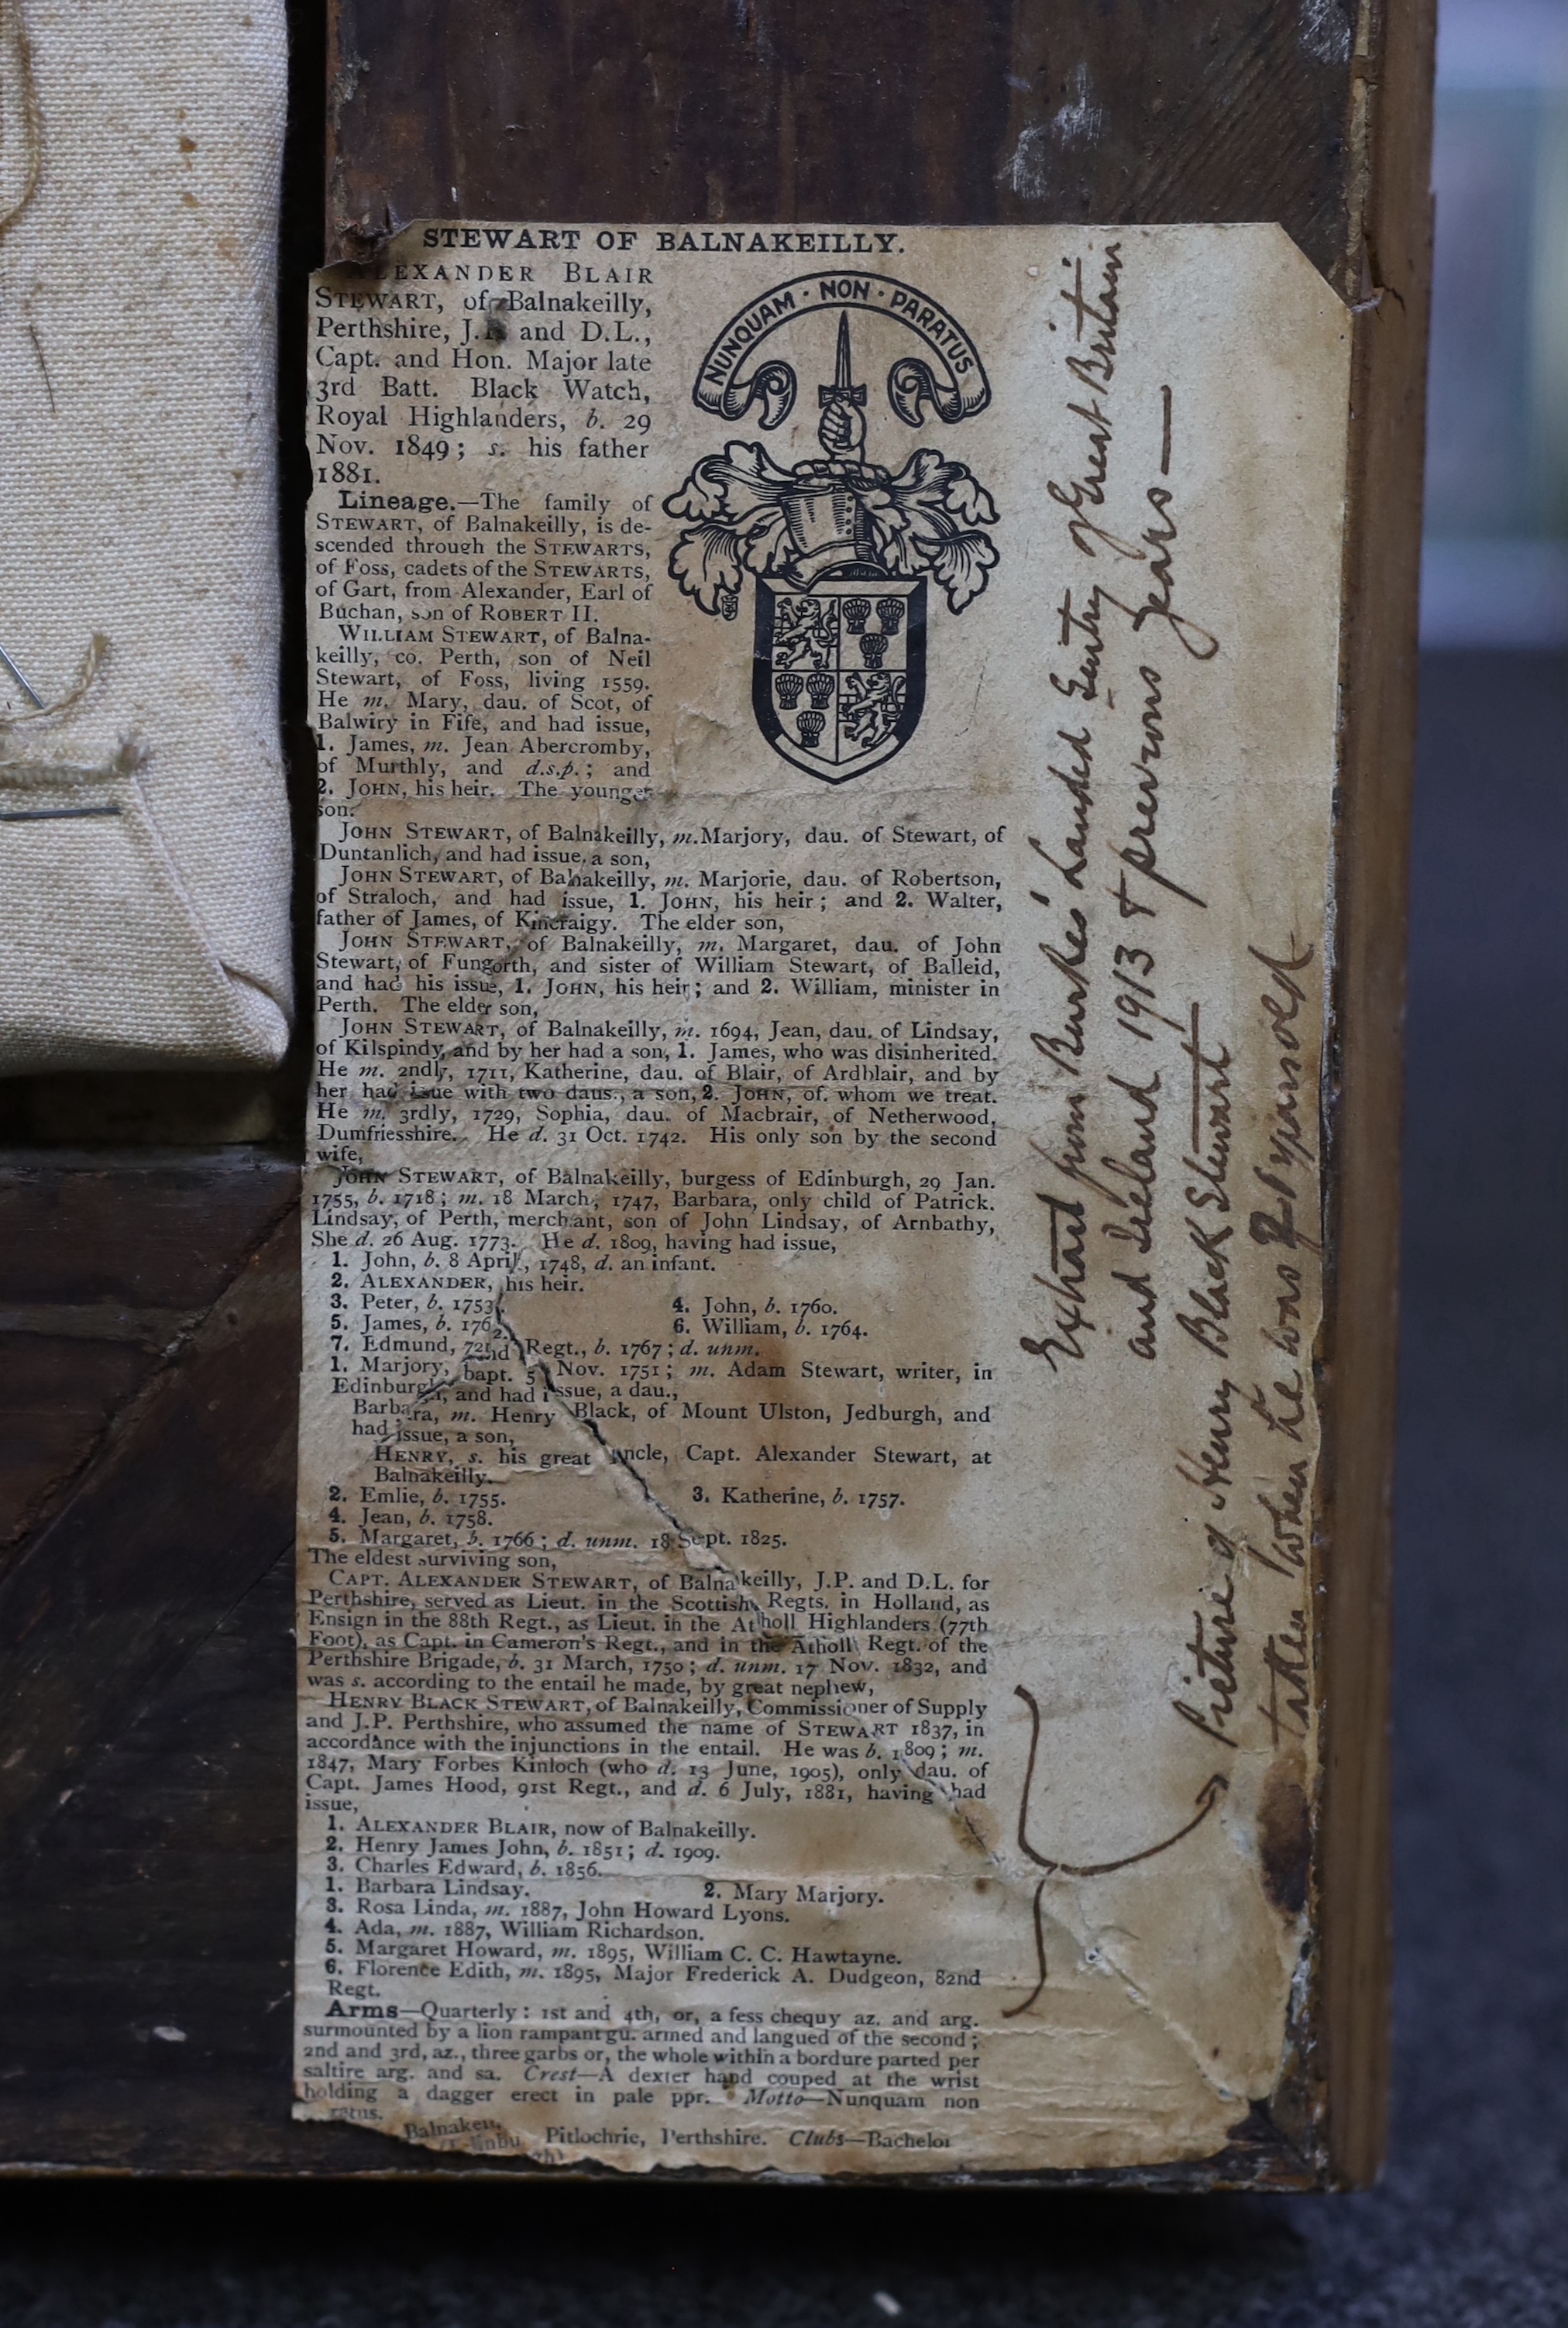 STEWART OF BALNAKEILLY.
ALEXANDER BLAIR
STEWART, of Balnakeilly,
Perthshire, J.P. and D.L.,
Capt. and Hon. Major late
3rd Batt. Black Watch,
Royal Highlanders, b. 29
Nov. 1849; s. his father
1881.
NUNQUAM · NON · PARATUS
Lineage.—The family of
STEWART, of Balnakeilly, is de-
scended through the STEWARTS,
of Foss, cadets of the STEWARTS,
of Gart, from Alexander, Earl of
Buchan, son of ROBERT II.
WILLIAM STEWART, of Balna-
keilly, co. Perth, son of Neil
Stewart, of Foss, living 1559.
He m. Mary, dau. of Scot, of
Balwiry in Fife, and had issue,
1. James, m. Jean Abercromby,
of Murthly, and d.s.p.; and
2. JOHN, his heir. The younger
son.
JOHN STEWART, of Balnakeilly, m. Marjory, dau. of Stewart, of
Duntanlich, and had issue, a son,
JOHN STEWART, of Balnakeilly, m. Marjorie, dau. of Robertson,
of Straloch, and had issue, 1. JOHN, his heir; and 2. Walter,
father of James, of Kincraigy. The elder son,
JOHN STEWART, of Balnakeilly, m. Margaret, dau. of John
Stewart, of Fungorth, and sister of William Stewart, of Balleid,
and had his issue, 1. JOHN, his heir; and 2. William, minister in
Perth. The elder son,
JOHN STEWART, of Balnakeilly, m. 1694, Jean, dau. of Lindsay,
of Kilspindy, and by her had a son, 1. James, who was disinherited.
He m. 2ndly, 1711, Katherine, dau. of Blair, of Ardblair, and by
her had issue with two daus., a son, 2. JOHN, of whom we treat.
He m. 3rdly, 1729, Sophia, dau. of Macbrair, of Netherwood,
Dumfriesshire. He d. 31 Oct. 1742. His only son by the second
wife,
JOHN STEWART, of Balnakeilly, burgess of Edinburgh, 29 Jan.
1755, b. 1718; m. 18 March, 1747, Barbara, only child of Patrick.
Lindsay, of Perth, merchant, son of John Lindsay, of Arnbathy,
She d. 26 Aug. 1773. He d. 1809, having had issue,
1. John, b. 8 April, 1748, d. an infant.
2. ALEXANDER, his heir.
3. Peter, b. 1753. 4. John, b. 1760.
5. James, b. 1762. 6. William, b. 1764.
7. Edmund, 72nd Regt., b. 1767; d. unm.
1. Marjory, bapt. 5 Nov. 1751; m. Adam Stewart, writer, in
Edinburgh, and had issue, a dau.,
Barbara, m. Henry Black, of Mount Ulston, Jedburgh, and
had issue, a son,
HENRY, s. his great uncle, Capt. Alexander Stewart, at
Balnakeilly.
2. Emlie, b. 1755. 3. Katherine, b. 1757.
4. Jean, b. 1758.
5. Margaret, b. 1766; d. unm. 18 Sept. 1825.
The eldest surviving son,
CAPT. ALEXANDER STEWART, of Balnakeilly, J.P. and D.L. for
Perthshire, served as Lieut. in the Scottish Regts. in Holland, as
Ensign in the 88th Regt., as Lieut. in the Atholl Highlanders (77th
Foot), as Capt. in Cameron's Regt., and in the Atholl Regt. of the
Perthshire Brigade, b. 31 March, 1750; d. unm. 17 Nov. 1832, and
was s. according to the entail he made, by great nephew,
HENRY BLACK STEWART, of Balnakeilly, Commissioner of Supply
and J.P. Perthshire, who assumed the name of STEWART 1837, in
accordance with the injunctions in the entail. He was b. 1809; m.
1847, Mary Forbes Kinloch (who d. 13 June, 1905), only dau. of
Capt. James Hood, 91st Regt., and d. 6 July, 1881, having had
issue,
1. ALEXANDER BLAIR, now of Balnakeilly.
2. Henry James John, b. 1851; d. 1909.
3. Charles Edward, b. 1856.
1. Barbara Lindsay. 2. Mary Marjory.
3. Rosa Linda, m. 1887, John Howard Lyons.
4. Ada, m. 1887, William Richardson.
5. Margaret Howard, m. 1895, William C. C. Hawtayne.
6. Florence Edith, m. 1895, Major Frederick A. Dudgeon, 82nd
Regt.
Arms—Quarterly: 1st and 4th, or, a fess chequy az. and arg.
surmounted by a lion rampant gu. armed and langued of the second;
2nd and 3rd, az., three garbs or, the whole within a bordure parted per
saltire arg. and sa. Crest—A dexter hand couped at the wrist
holding a dagger erect in pale ppr. Motto—Nunquam non
Pitlochrie, Perthshire. Clubs—Bachelor
Extract from Burkes' Landed Gentry of Great Britain
and Ireland 1913 & previous years—
Picture of Henry Black Stewart
taken when he was years old